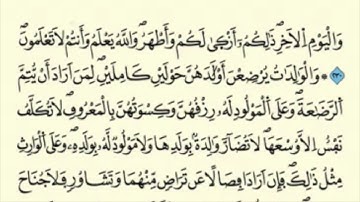 وَالْيَوْمِ اِ۬لَاخِرِۖ ذَٰلِكُمُۥٓ أَزْك۪يٰ لَكُمْ وَأَطْهَرُۖ وَاللَّهُ يَعْلَمُ وَأَنتُمْ لَا تَعْلَمُونَۖ
۝٢٣٠ وَالْوَٰلِدَٰتُ يُرْضِعْنَ أَوْلَٰدَهُنَّ حَوْلَيْنِ كَامِلَيْنِۖ لِمَنَ اَرَادَ أَنْ يُّتِمَّ
اَ۬لرَّضَٰعَةَۖ وَعَلَى اَ۬لْمَوْلُودِ لَهُۥ رِزْقُهُنَّ وَكِسْوَتُهُنَّ بِالْمَعْرُوفِۖ لَا تُكَلَّفُ
نَفْسٌ اِلَّا وُسْعَهَاۖ لَا تُضَآرَّ وَٰلِدَةُۢ بِوَلَدِهَا وَلَا مَوْلُودٞ لَّهُۥ بِوَلَدِهِۦۖ وَعَلَى اَ۬لْوَارِثِ
مِثْلُ ذَٰلِكَۖ فَإِنَ اَرَادَا فِصَالاً عَن تَرَاضٖ مِّنْهُمَا وَتَشَاوُرٖ فَلَا جُنَاحَ